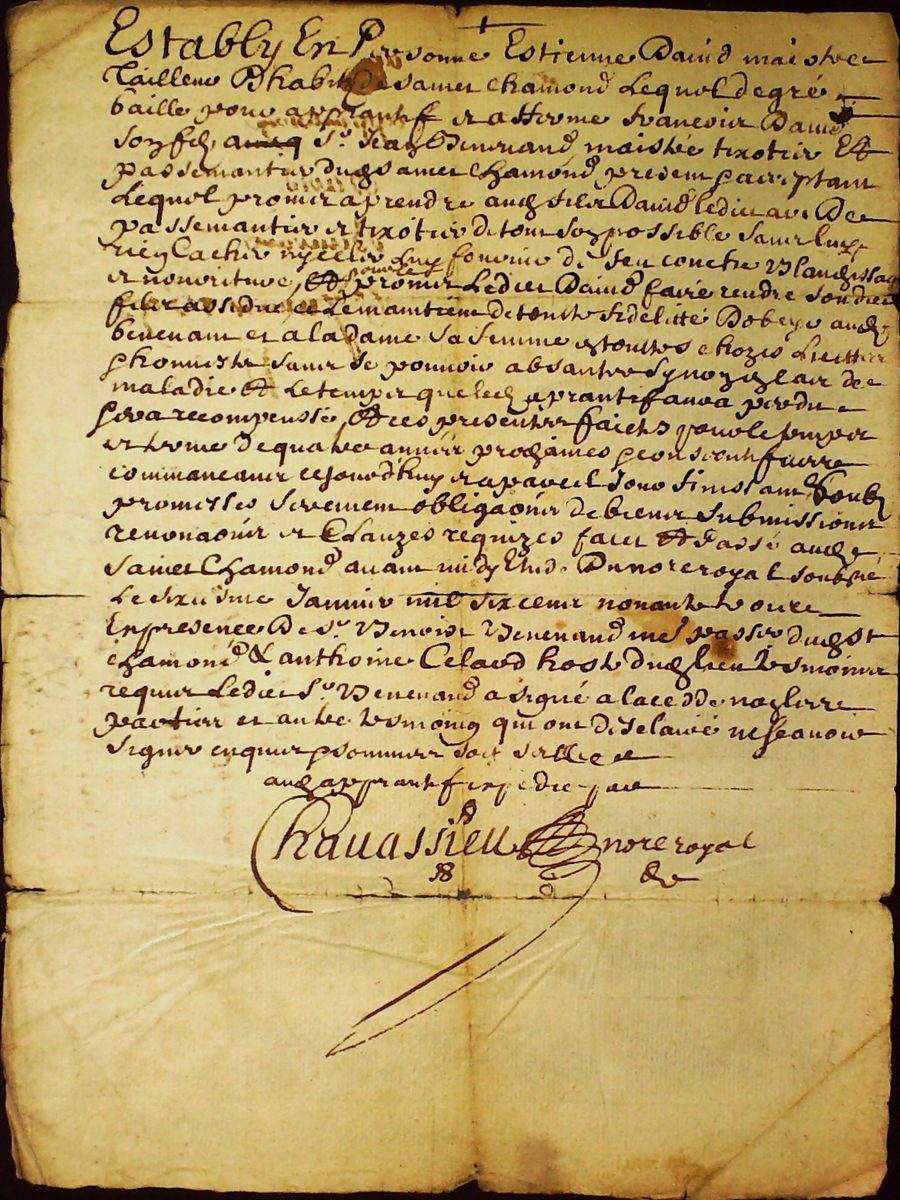 Establly En Personne Estienne David maistre
Tailleur D habitz de sainct chamond Lequel de gré
baille pour apprantif et atterme francois David
son filz, s.r Jean Benenand maistre tixotier Et
passemantier dud sainct chamond present et acceptant
Lequel promet aprendre aud filz David ledict art De
passemantier et tixotier de tout son possible sans luy
rien Cacher ny celer Luy fournir de feu couche Blanchissage
et nourriture, Et promet Ledict David faire rendre sondict
filz assidu et Le maintenir de toute fidelitté Dobeyr aud
benenant et a la dame sa femme en touttes chozes Licittes
et honneste sans se pouvoir absanter synon en cas de
maladie Et Le temps que led aprantif aura perdu
sera recompenssé, Et ces presentes faictes pour le temps
et terme De quatre années prochaines et consecutifves
commanceant cejourdhuy et a pareil jour finissant soubz
promesses serement obligaons de biens submissions
renonaons et Clauzes requizes faict Et Passé aud
sainct Chamond avant midy Estude Du no.re royal soubzné
Le sixiesme Janvier mil six cent nonante
En presence De s.r Benoist Benenand me passer dud st
chamond & anthoine Celard hoste dud lieu tesmoins
requis Ledict s.r Benenand a signé a la cedde non les
parties et autre tesmoing qui ont desclairé ne scavoir
signer enquis et sommes soit scellee
aud aprantif expedie par
Chavassieu no.re royal